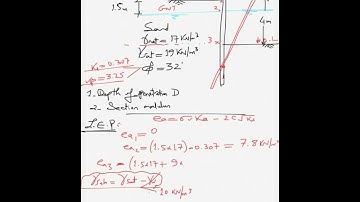 1.5m
G.W.T
2
4m
Sand
γnat = 17 KN/m³
3
D.L
γsat = 19 KN/m³
Ka = 0.307
φ = 32°
Kp = 3.25
1- Depth of penetration D
2- Section modulus
ea = σv Ka - 2c√Ka
L.E.P:
ea1 = 0
ea2 = (1.5x17) * 0.307 = 7.8 KN/m²
ea3 = (1.5x17 + 9x
γsub = γsat - γw
10 KN/m³